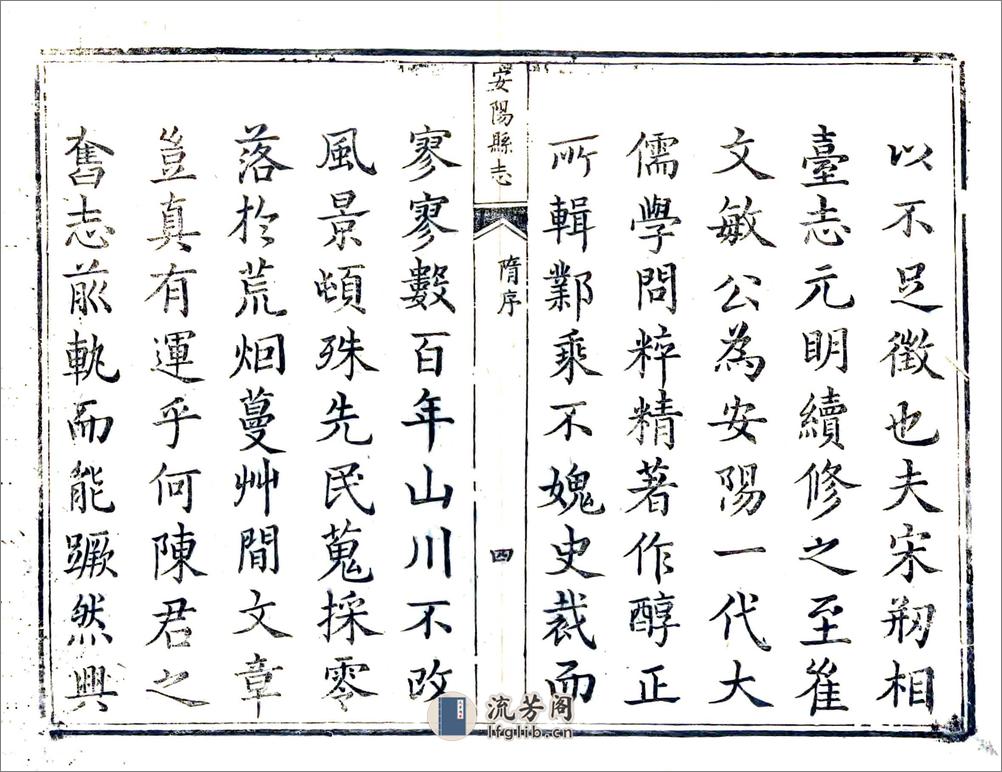 以不足徵也夫宋刱相
臺志元明續修之至崔
文敏公為安陽一代大
儒學問粹精著作醇正
所輯鄴乘不媿史裁而
安陽縣志
隋序
四
寥寥數百年山川不改
風景頓殊先民蒐採零
落於荒烟蔓艸間文章
豈真有運乎何陳君之
奮志前軌而能蹶然興
流芳阁
lfglib.cn